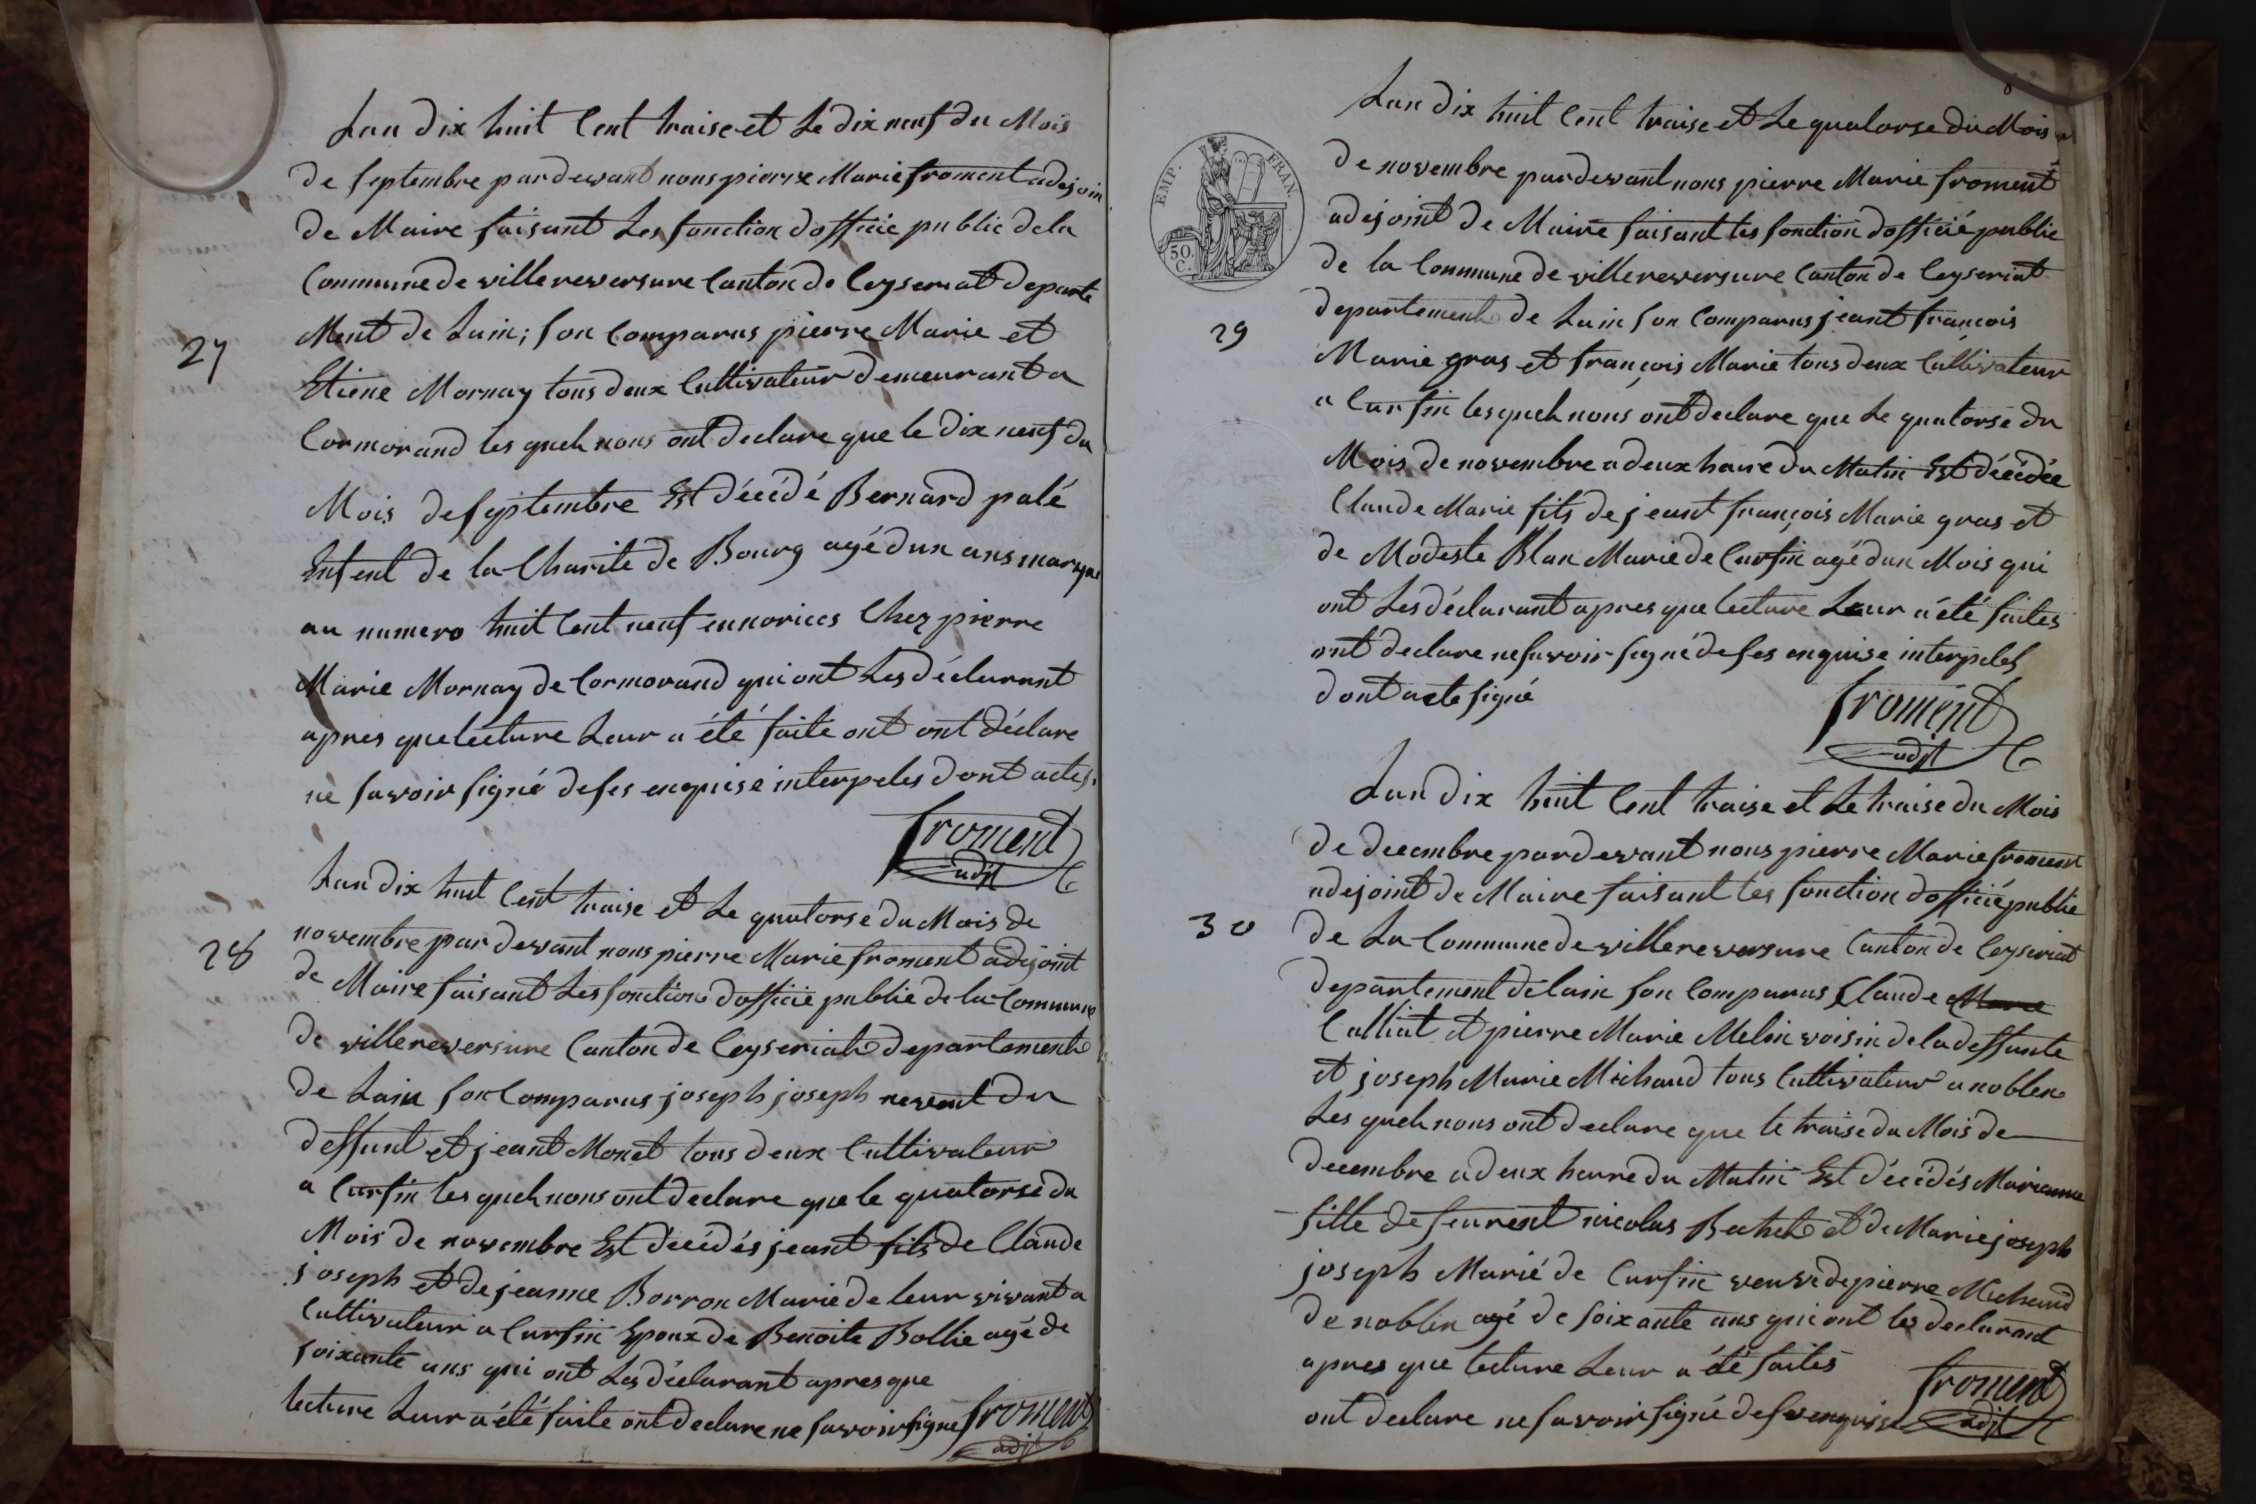 Lan dix huit Cent traise et Le dix neuf du Mois
de septembre pardevant nous pierre Marie froment adejoin
de Maire faisant Les fonction dofficié public dela
Commune de villereversure Canton de Ceyseriat departe
27
Ment de Lain ; son Comparus pierre Marie et
Etiene Mornay tous deux Cultivateur demeurant a
Cormorand les quels nous ont declare que le dix neuf du
Mois de septembre Est décédé Bernard palé
Enfent de la Charite de Bourg agé dun ans marque
au numero huit Cent neuf ennorices Chez pierre
Marie Mornay de Cormorand qui ont Les déclarant
apres que lecture Leur a été faite ont ont déclare
ne savoir signé de ses enquise interpeles dont actes.
froment
adjt
Lan dix huit Cent traise et Le quatorse du Mois de
28
novembre par devant nous pierre Marie froment adejoint
de Maire faisant Les fonction dofficié public de la Commune
de villereversure Canton de Ceyseriat departement
de Lain son Comparus joseph joseph nevent du
deffunt et jeant Monet tous deux Cultivateur
a Cursin les quels nous ont declare que le quatorse du
Mois de novembre Est décédés jeant fils de Claude
joseph et de jeanne Borron Marié de leur vivant a
Cultivateur a Cursin Epoux de Benoite Bollie agé de
soixante ans qui ont Les déclarant apres que
lecture Leur a été faite ont declare ne savoir signe froment
adjt
EMP. FRAN.
50. C.
Lan dix huit Cent traise et Le quatorse du Mois
de novembre pardevant nous pierre Marie froment
adejoint de Maire faisant les fonction dofficié public
de la Commune de villereversure Canton de Ceyseriat
29
departement de Lain son Comparus jeant françois
Marie gras et françois Marie tous deux Cultivateur
a Cursin les quels nous ont declare que Le quatorse du
Mois de novembre a deux heure du Matin Est décédée
Claude Marie fils de jeant françois Marie gras et
de Modeste Blan Marié de Cursin agé dun Mois qui
ont Les déclarant apres que lecture Leur a été faites
ont declare ne savoir signé de ses enquise interpeles
dont acte signé
froment
adjt
Lan dix huit Cent traise et Le traise du Mois
de decembre pardevant nous pierre Marie froment
adejoint de Maire faisant les fonction dofficié public
30
de La Commune de villereversure Canton de Ceyseriat
departement de lain son Comparus Claude Marie
Calliat et pierre Marie Melin voisin de la deffunte
et joseph Marie Michaud tous Cultivateur a noblen
Les quels nous ont declare que le traise du Mois de
decembre a deux heure du Matin Est décédés Marianne
fille de feu nicolas Bechet et de Marie joseph
joseph Marié de Cursin veuve de pierre Michaud
de noblen agé de soixante ans qui ont les declarant
apres que lecture Leur a été faites
ont declare ne savoir signé de ses enquise
froment
adjt